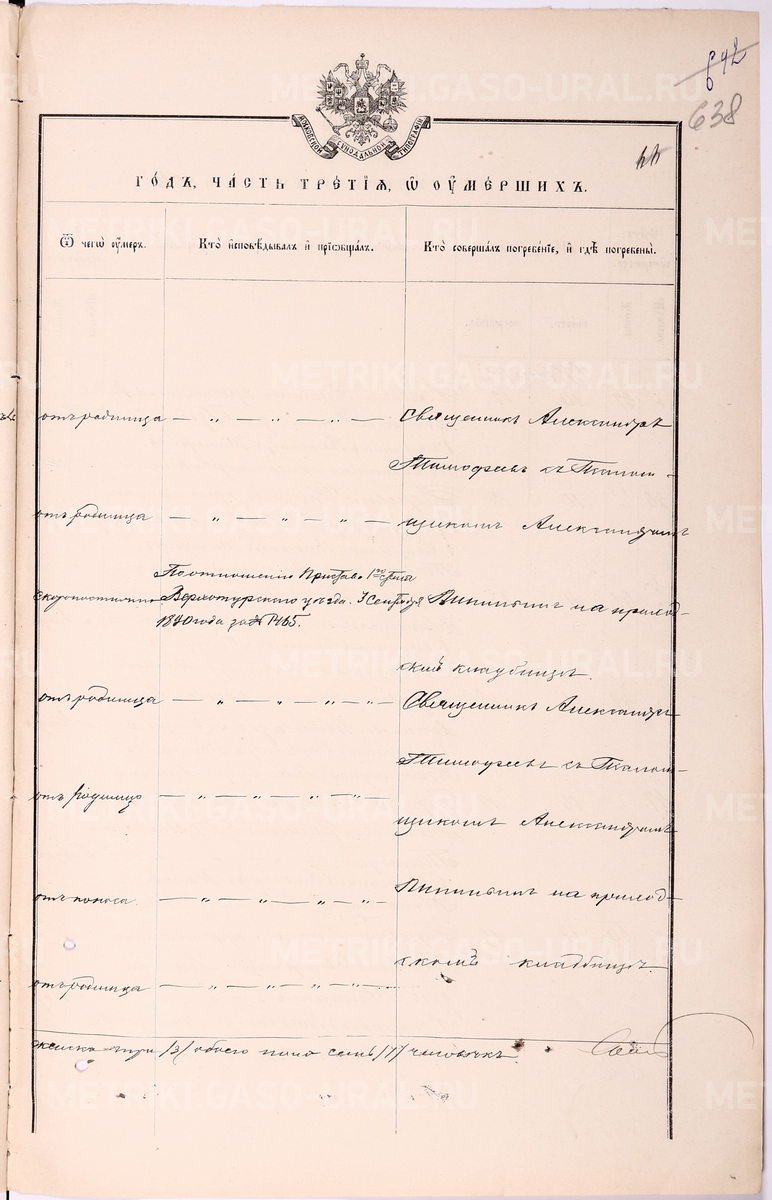 642
638
МОСКОВСКОЙ СѴНОДАЛЬНОЙ ТИПОГРАФІИ
ГО́ДЪ, ЧА́СТЬ ТРЕ́ТІѦ, Ѡ҆ ОУ҆МЕ́РШИХЪ.
Ѿ чегѡ̀ оу҆́меръ.
Кто̀ и҆сповѣ́дывалъ и҆ прїѡбща́лъ.
Кто̀ соверша́лъ погребе́нїе, и҆ гдѣ̀ погребены̀.
отъ родимца — „ — „ — „ — Священникъ Александръ
Тимофеевъ съ Псалом-
отъ родимца — „ — „ — „ — щикомъ Александромъ
По отношенію Пристава 1го стана
скоропостижно Верхотурскаго уѣзда. Сентября на приход-
года за № 1465.
скомъ кладбищѣ.
отъ родимца — „ — „ — „ — „ Священникъ Александръ
Тимофеевъ съ Псалом-
отъ родимца — „ — „ — „ — „ —
щикомъ Александромъ
отъ поноса. — „ — „ — „ — „ — на приход-
скомъ кладбищѣ.
отъ родимца — „ — „ — „ — „
женска три /3/ обоего пола семь /7/ человѣкъ.
METRIKI.GASO-URAL.RU